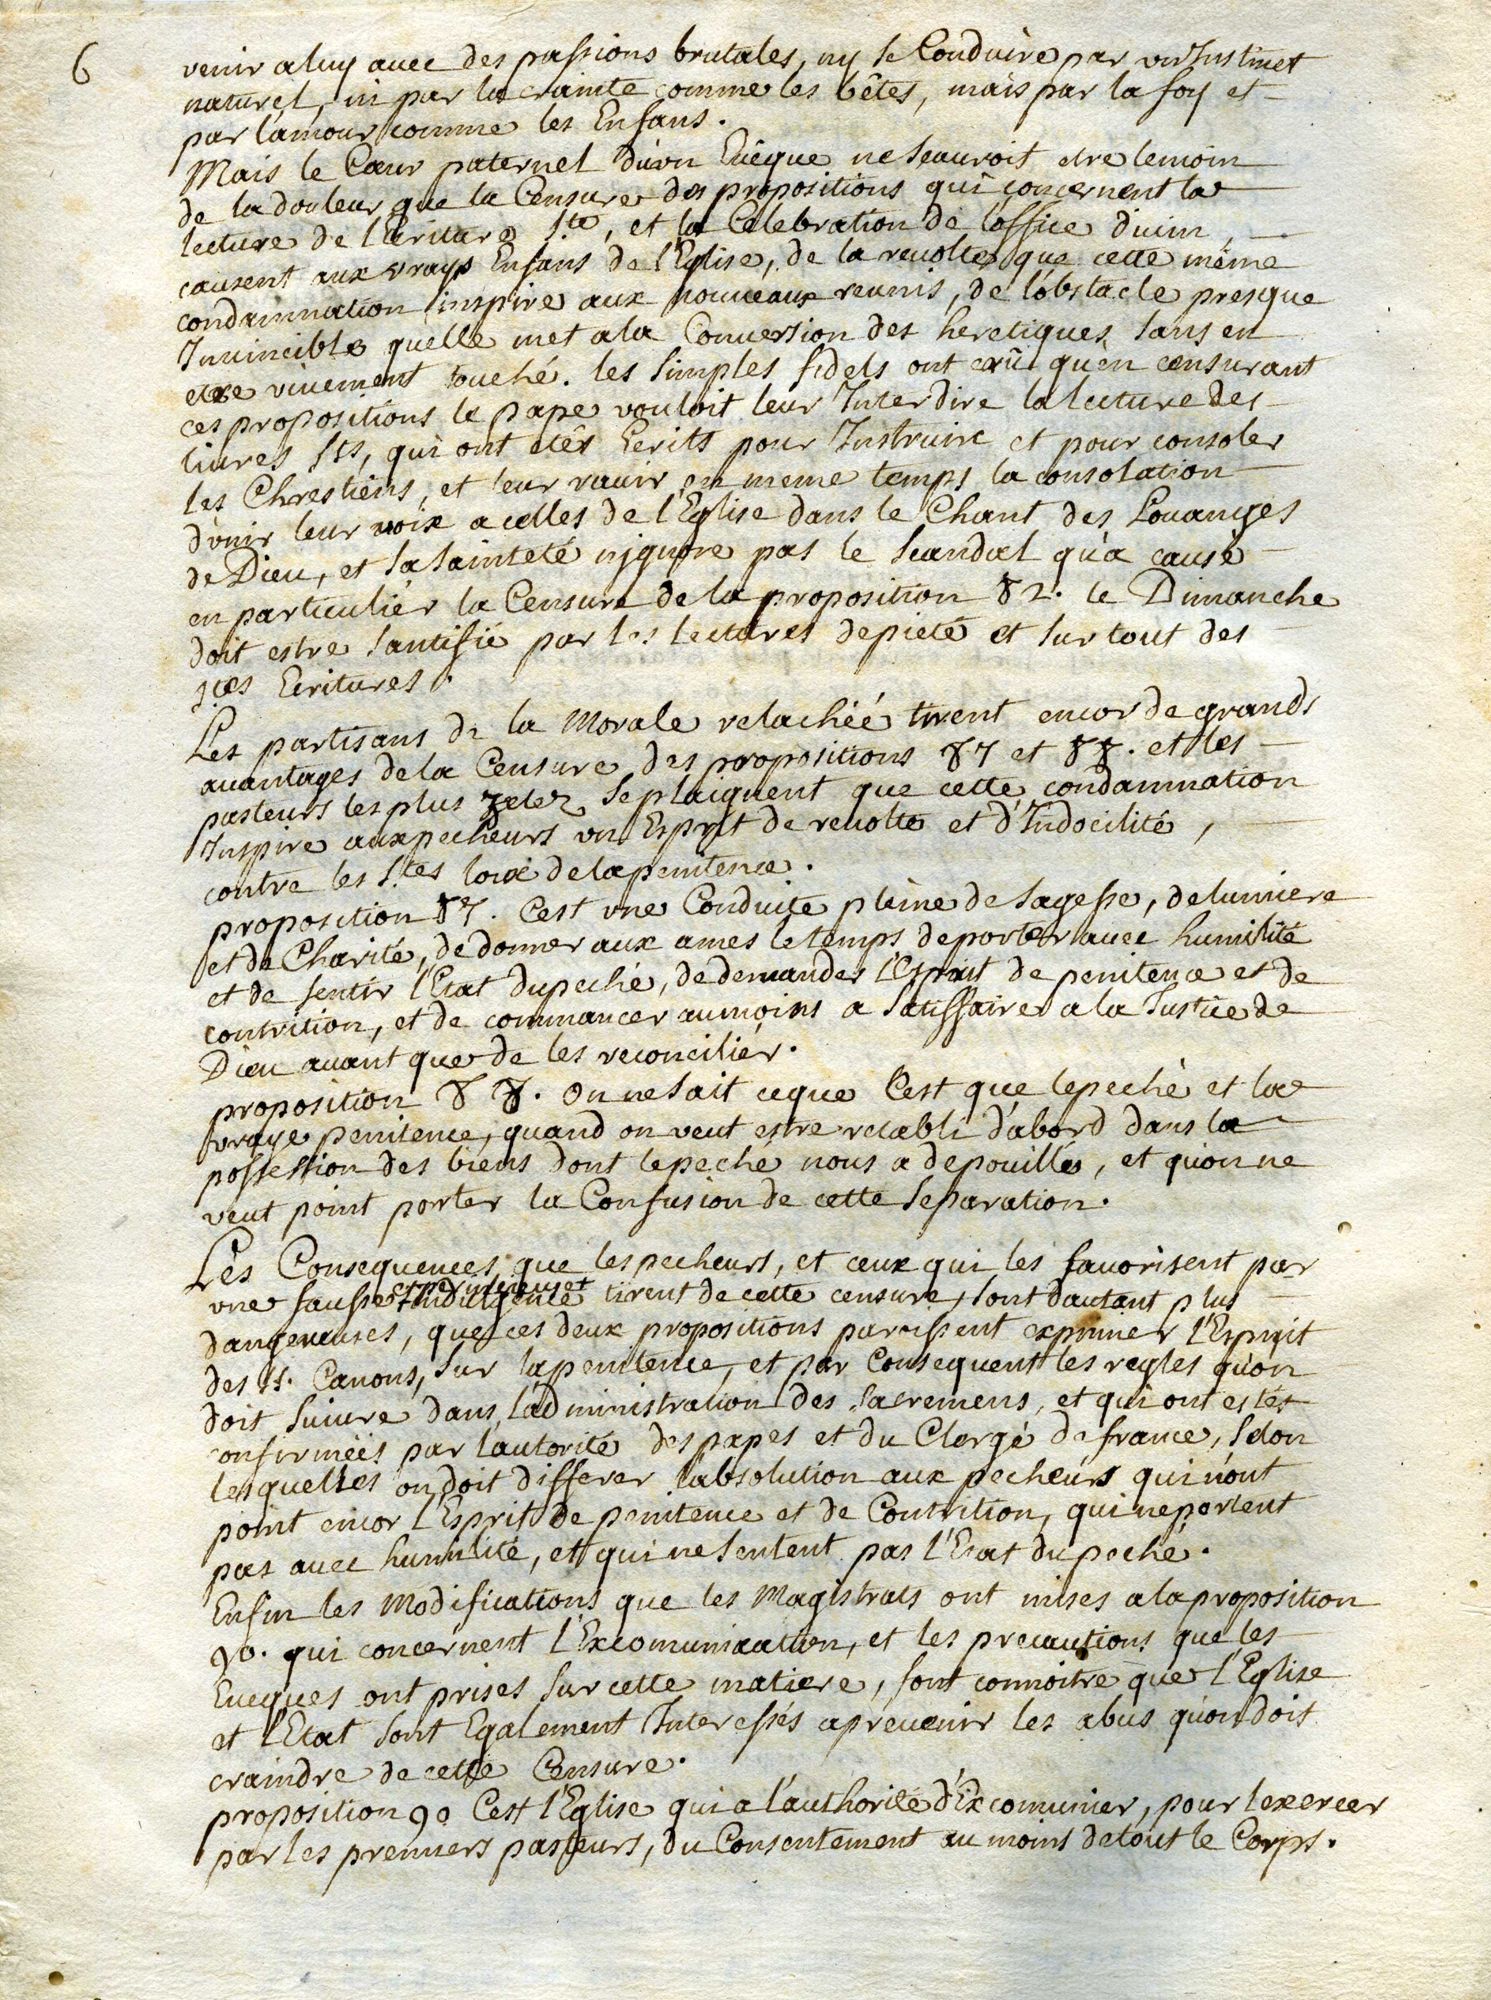 6
venir a luy avec des passions brutales, ny se Conduire par un Instinct
naturel, ni par la crainte comme les bêtes, mais par la foy et
par l'amour comme les Enfans.
Mais le Cœur paternel d'un Evêque ne scauroit etre temoin
de la douleur que la Censure des propositions qui concernent la
lecture de l'Ecriture Ste, et la Celebration de l'office divin,
causent aux vrays Enfans de l'Eglise, de la revolte que cette même
condamnation inspire aux nouveaux reunis, de l'obstacle presque
Invincible quelle met a la Conversion des heretiques sans en
etre vivement touché. les simples fidels ont crû qu'en censurant
ces propositions le pape vouloit leur Interdire la lecture des
livres Sts, qui ont etés Ecrits pour Instruire et pour consoler
les Chrestiens, et leur ravir en meme temps la consolation
d'unir leur voix a celles de l'Eglise dans le Chant des Louanges
de Dieu, et sa sainteté n'jgnore pas le scandal qu'a causé
en particulier la Censure de la proposition 82. le Dimanche
doit estre santifié par les lectures de pieté et sur tout des
stes Ecritures.
Les partisans de la Morale relachéé tirent encor de grands
avantages de la Censure des propositions 87 et 88. et les
pasteurs les plus zelez se plaignent que cette condamnation
Inspire aux pecheurs un Esprit de revolte et d'Indocilité,
contre les Stes loix de la penitence.
proposition 87. C'est une Conduite pleine de sagesse, de lumiere
et de Charité, de donner aux ames le temps de porter avec humilité
et de sentir l'Etat du peché, de demander l'Esprit de penitence et de
contrition, et de commancer au moins a satisfaire a la Justice de
Dieu avant que de les reconcilier.
proposition 88. On ne sait ce que C'est que le peché et la
vraye penitence, quand on veut estre retabli d'abord dans la
possession des biens dont le peché nous a depouillés, et qu'on ne
veut point porter la Confusion de cette separation.
Les Consequences que les pecheurs, et ceux qui les favorisent par
une fausse et pernicieuse Indulgence tirent de cette censure, sont d'autant plus
dangereuses, que ces deux propositions paroissent exprimer l'Esprit
des Sts. Canons, sur la penitence, et par Consequent les regles qu'on
doit suivre dans l'administration des sacremens, et qui ont estés
confirméés par l'autorité des papes et du Clergé de france, selon
lesquelles on doit differer l'absolution aux pecheurs qui n'ont
point encor l'Esprit de penitence et de Contrition, qui ne portent
pas avec humilité, et qui ne sentent pas l'Etat du peché.
Enfin les Modifications que les Magistrats ont mises a la proposition
90. qui concernent l'Excomunication, et les precautions que les
Eveques ont prises sur cette matiere, font connoitre que l'Eglise
et l'Etat sont Egalement Interessés a prevenir les abus qu'on doit
craindre de cette Censure.
proposition 90 C'est l'Eglise qui a l'authorité d'Excomunier, pour l'exercer
par les premiers pasteurs, du Consentement au moins de tout le Corps.